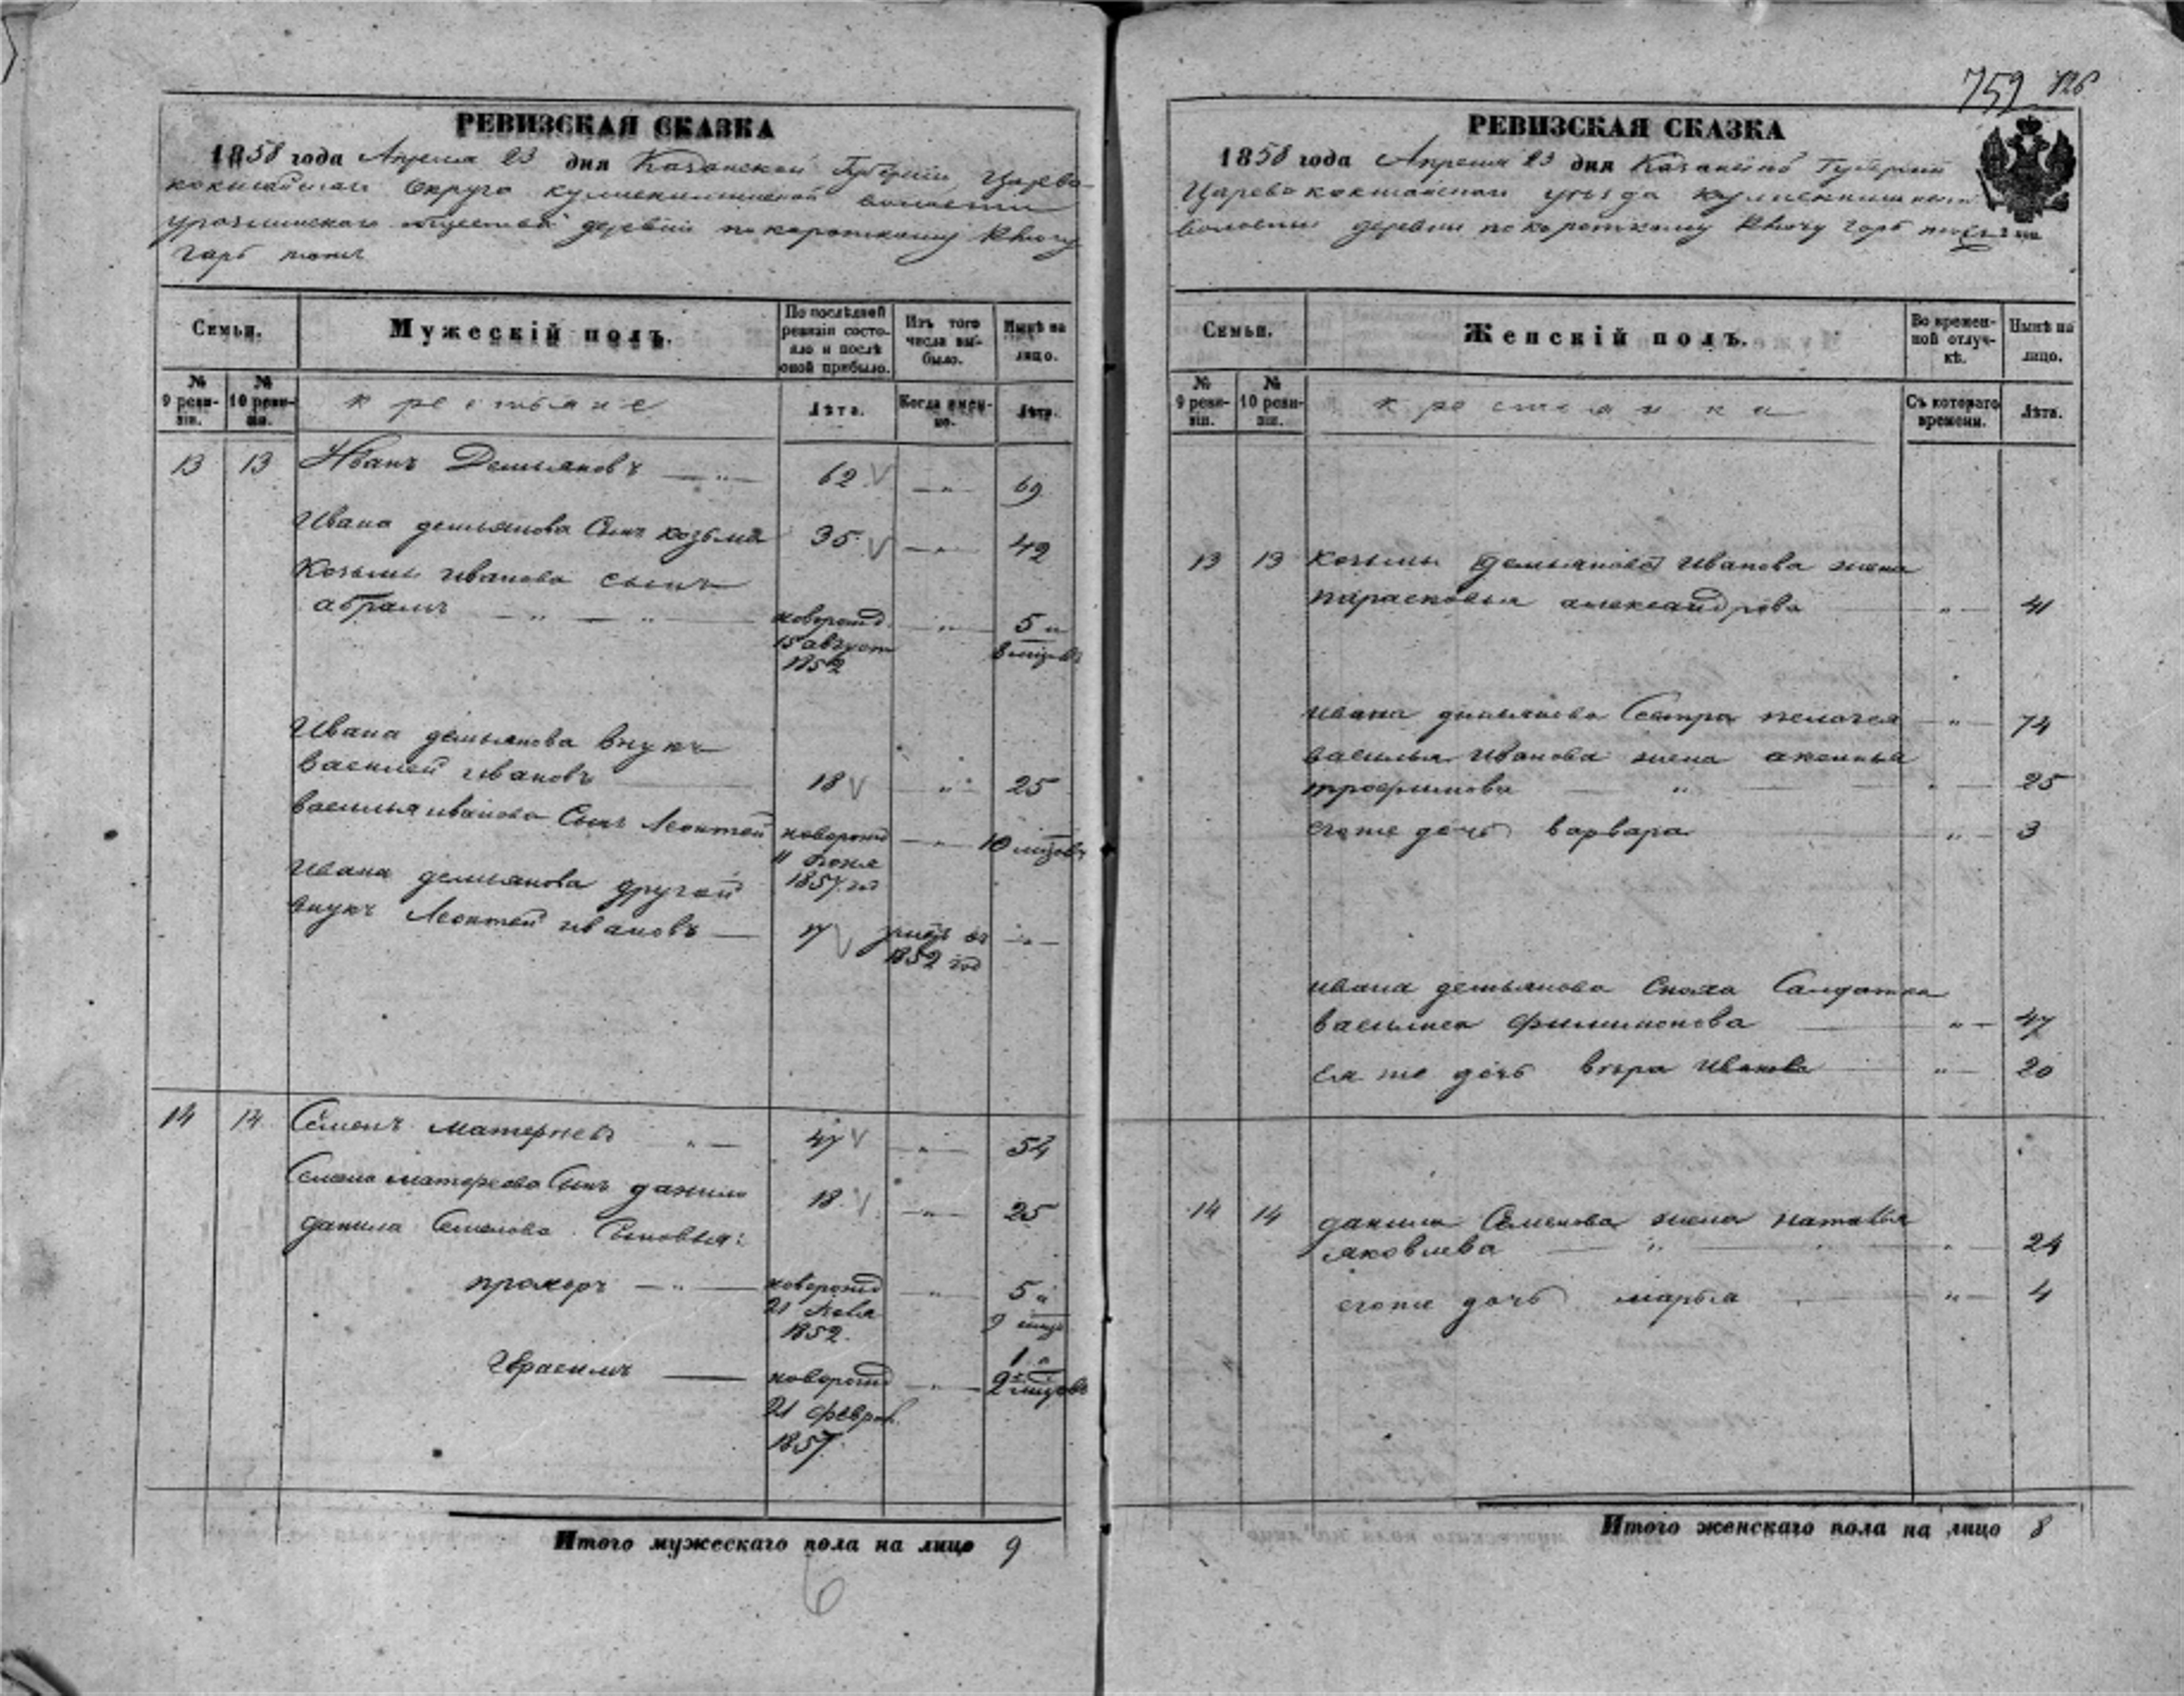 759 126
РЕВИЗСКАЯ СКАЗКА
1858 года Апреля 23 дня Казанской Губернии Царево-
кокшайскаго Округа кулленкиминской волости
общества деревни по короткому Ключу
Гарь тожъ
Семьи.
Мужескій полъ.
По послѣдней ревизіи состояло и послѣ оной прибыло.
Изъ того числа выбыло.
Ныне на лицо.
№ 9 ревизіи.
№ 10 ревизіи.
крестьяне
Лѣта.
Когда именно.
Лѣта.
13 13 Иванъ Демьяновъ — " — 62 — " — 69
Ивана демьянова Сынъ козьма 35 — " — 42
Козьмы иванова сынъ
абрамъ — " — " — новорожд — " — 5 и
15 август 8 мцовъ
1852
Ивана демьянова внукъ
василей ивановъ 18 — " — 25
василья иванова Сынъ Леонтей новорожд — " — 10 мцовъ
11 Июня
1857 год
Ивана демьянова другой
внукъ Леонтей ивановъ — 17 въ — " —
1852 год
14 14 Семенъ матернеевъ " — 47 — " — 54
Семена Сынъ данило 18 — " — 25
данила Семенова Сыновья:
прохоръ — " — новорожд — " — 5 и
21 Июля 9 мцов
1852.
Герасимъ — новорожд — " — 1 и
21 феврал. 2 мцовъ
1857.
Итого мужескаго пола на лицо 9
6
РЕВИЗСКАЯ СКАЗКА
1858 года Апреля 23 дня Казанской Губернии
Царевококшайскаго уѣзда
волости деревни по короткому Ключу Гарь тожъ
Семьи.
Женскій полъ.
Во временной отлучкѣ.
Ныне на лицо.
№ 9 ревизіи.
№ 10 ревизіи.
крестьянки
Съ котораго времени.
Лѣта.
13 13 козьмы Иванова жена
парасковья александрова — " — 41
ивана демьянова Сестра пелагея — " — 74
василья Иванова жена аксинья
трофимова — " — " — 25
егоже дочь варвара — " — 3
ивана демьянова Сноха Салдатка
василиса филимонова — " — 47
ея же дочь вѣра Иванова — " — 20
14 14 данилы Семенова жена наталья
яковлева — " — " — 24
егоже дочь марья — " — 4
Итого женскаго пола на лицо 8